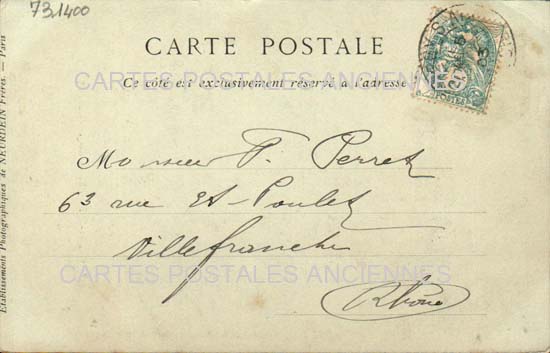 731400
CARTE POSTALE
CARTES POSTALES ANCIENNES
Ce côté est exclusivement réservé à l'adresse
Monsieur F. Perret
63 rue et Poulet
Villefranche
CARTES POSTALES ANCIENNES
Rhône
Etablissements Photographiques de NEURDEIN Frères. — Paris